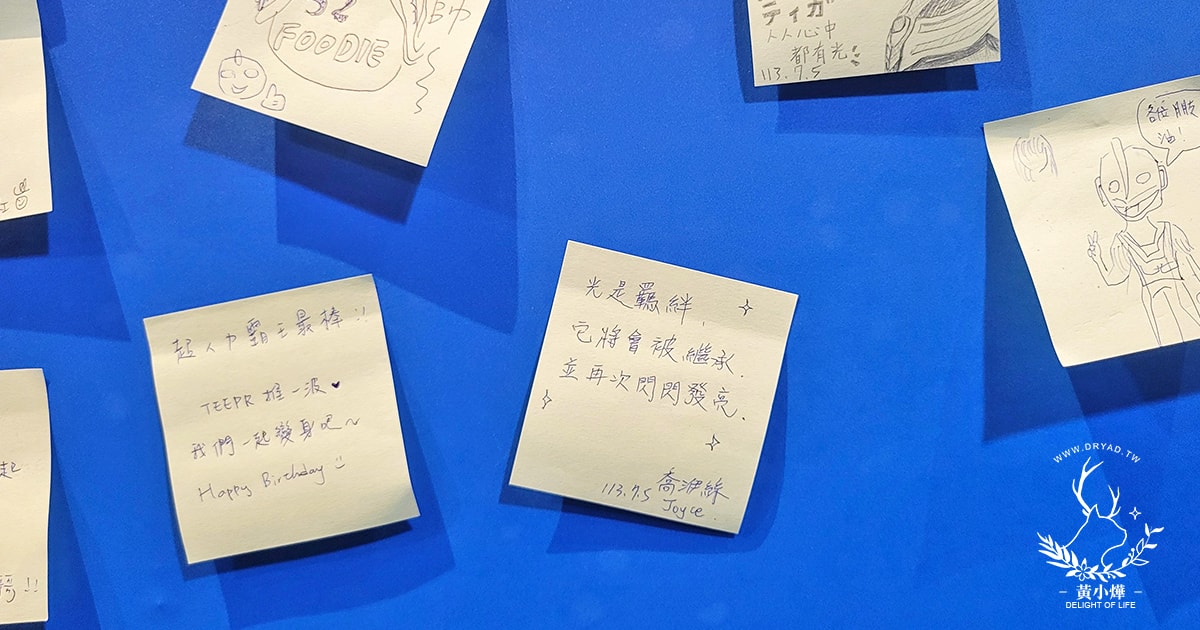 FOODIE
帥
ティガ
人人心中
都有光!
113.7.5
各位朋友
油!
北
起人力霸王最棒!!
TEEPR 推一波♥
我們一起變身吧~
Happy Birthday
光是羈絆,
它將會被繼承.
並再次閃閃發亮.
113.7.5 喬伊絲
Joyce.
起
!!
WWW.DRYAD.TW
黃小燁
DELIGHT OF LIFE